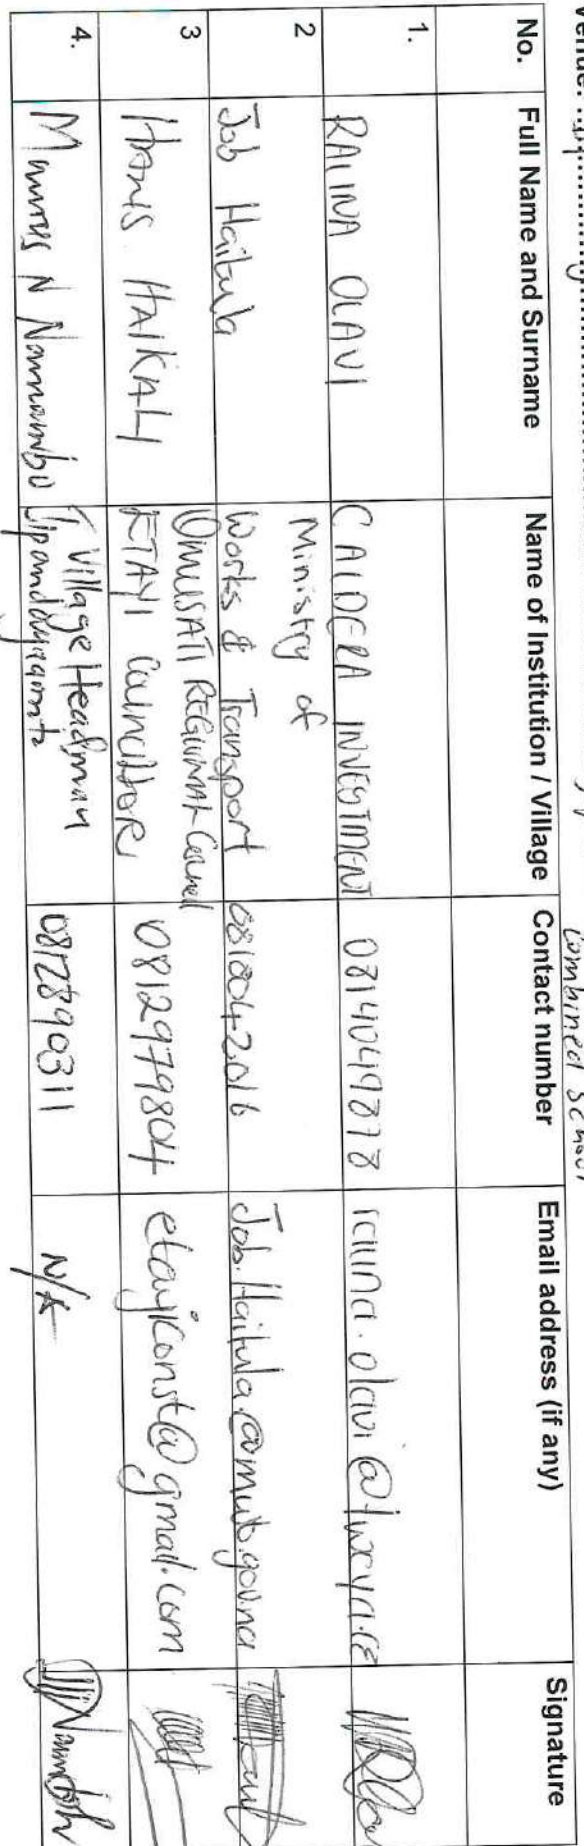 Venue:
Combined School
No. Full Name and Surname Name of Institution / Village Contact number Email address (if any) Signature
1. RALINA OLAVI CALDERA INVESTMENT 0814049878
2 Job Haitula Ministry of
Works & Transport 0818042016 Job.Haitula@mwt.gov.na
3 HANS HAIKALI OMUSATI REGIONAL Council
ETAYI COUNCILLOR 0812979804 etayiconst@gmail.com
4. N Namambo Village Headman
0812890311 N/A